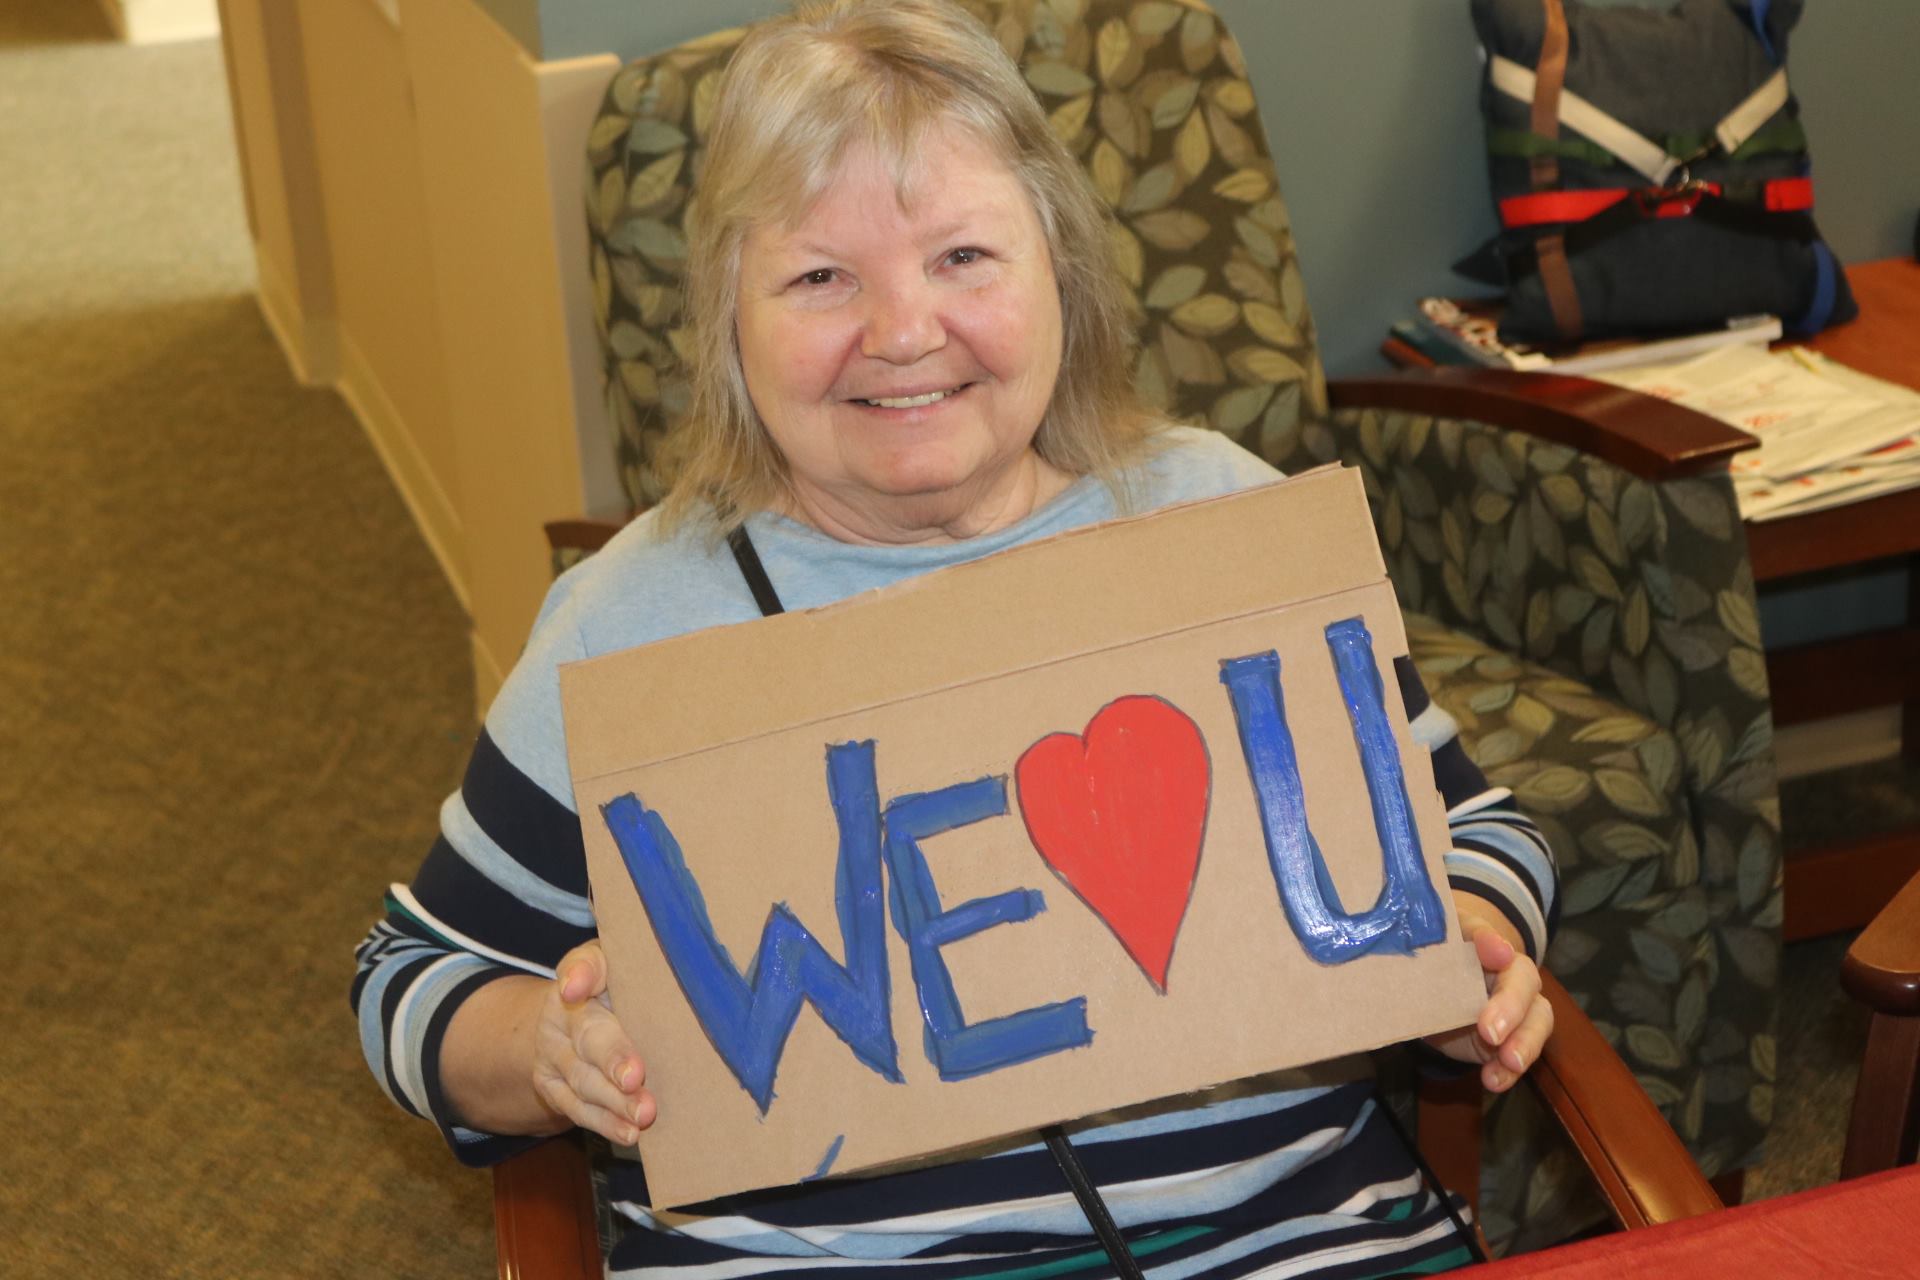 WE ♥ U